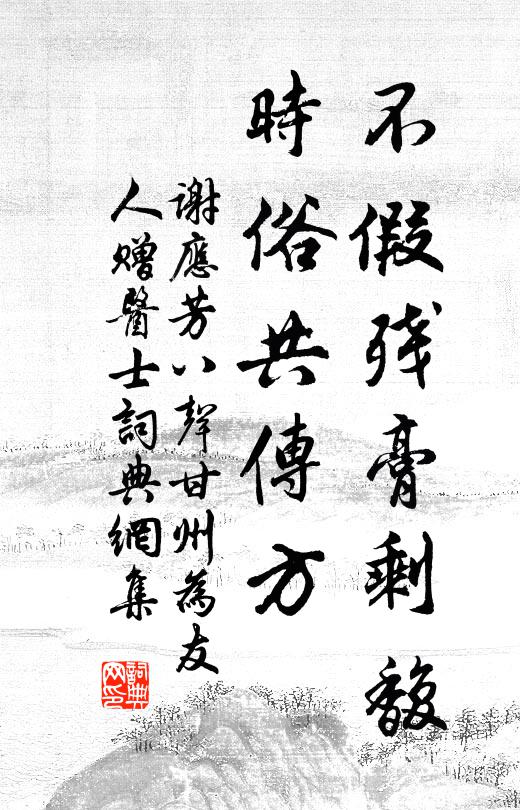 不假残膏剩馥
時俗共傳方
謝應芳八聲甘州為友
人贈醫士詞典網集
詞典網印